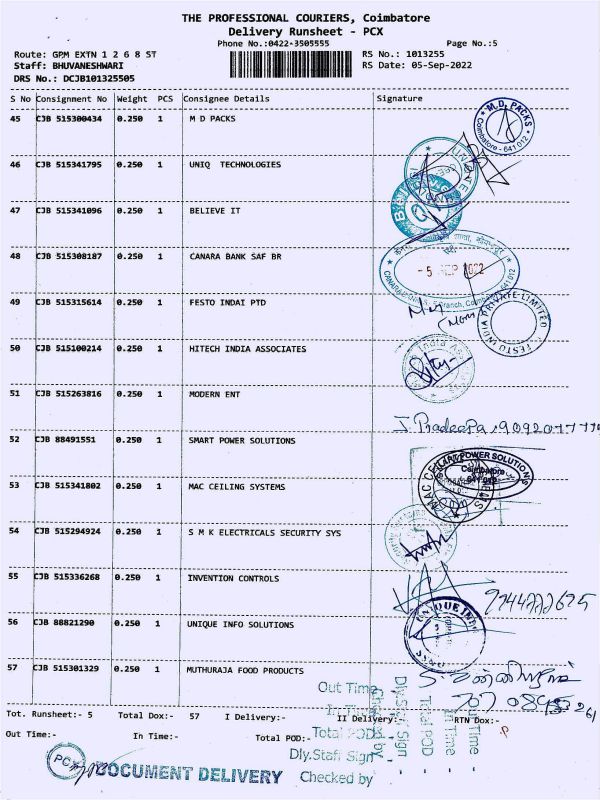 THE PROFESSIONAL COURIERS, Coimbatore
Delivery Runsheet - PCX
Phone No.:0422-3505555
Page No.:5
Route: GPM EXTN 1 2 6 8 ST
RS No.: 1013255
Staff: BHUVANESHWARI
RS Date: 05-Sep-2022
DRS No.: DCJB101325505
S No Consignment No Weight PCS Consignee Details Signature
45 CJB 515300434 0.250 1 M D PACKS
M.D. PACKS
Coimbatore - 641 012
46 CJB 515341795 0.250 1 UNIQ TECHNOLOGIES
47 CJB 515341096 0.250 1 BELIEVE IT
48 CJB 515308187 0.250 1 CANARA BANK SAF BR
- 5 SEP 2022
49 CJB 515315614 0.250 1 FESTO INDAI PTD
FESTO INDIA PRIVATE LIMITED
50 CJB 515100214 0.250 1 HITECH INDIA ASSOCIATES
51 CJB 515263816 0.250 1 MODERN ENT
J. Pradeepa
52 CJB 88491551 0.250 1 SMART POWER SOLUTIONS
POWER SOLUTIONS
Coimbatore
641 012
53 CJB 515341802 0.250 1 MAC CEILING SYSTEMS
MAC CEILING
54 CJB 515294924 0.250 1 S M K ELECTRICALS SECURITY SYS
55 CJB 515336268 0.250 1 INVENTION CONTROLS
56 CJB 88821290 0.250 1 UNIQUE INFO SOLUTIONS
UNIQUE INFO
57 CJB 515301329 0.250 1 MUTHURAJA FOOD PRODUCTS
Tot. Runsheet:- 5 Total Dox:- 57 I Delivery:- II Delivery:- RTN Dox:-
Out Time:- In Time:- Total POD:-
Out Time
In Time
Total POD
Dly.Staff Sign
Checked by
In Time
Total POD
Dly.Staff Sign
Checked by
PCX DOCUMENT DELIVERY